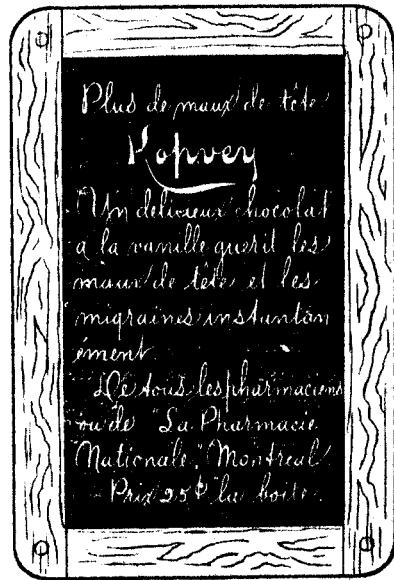 Plus de maux de tête
Kopvey
Un delicieux chocolat
a la vanille guerit les
maux de tête et les
migraines instantan
ément
De tous les pharmaciens
ou de "La Pharmacie
Nationale," Montreal
Prix 25¢ la boite.